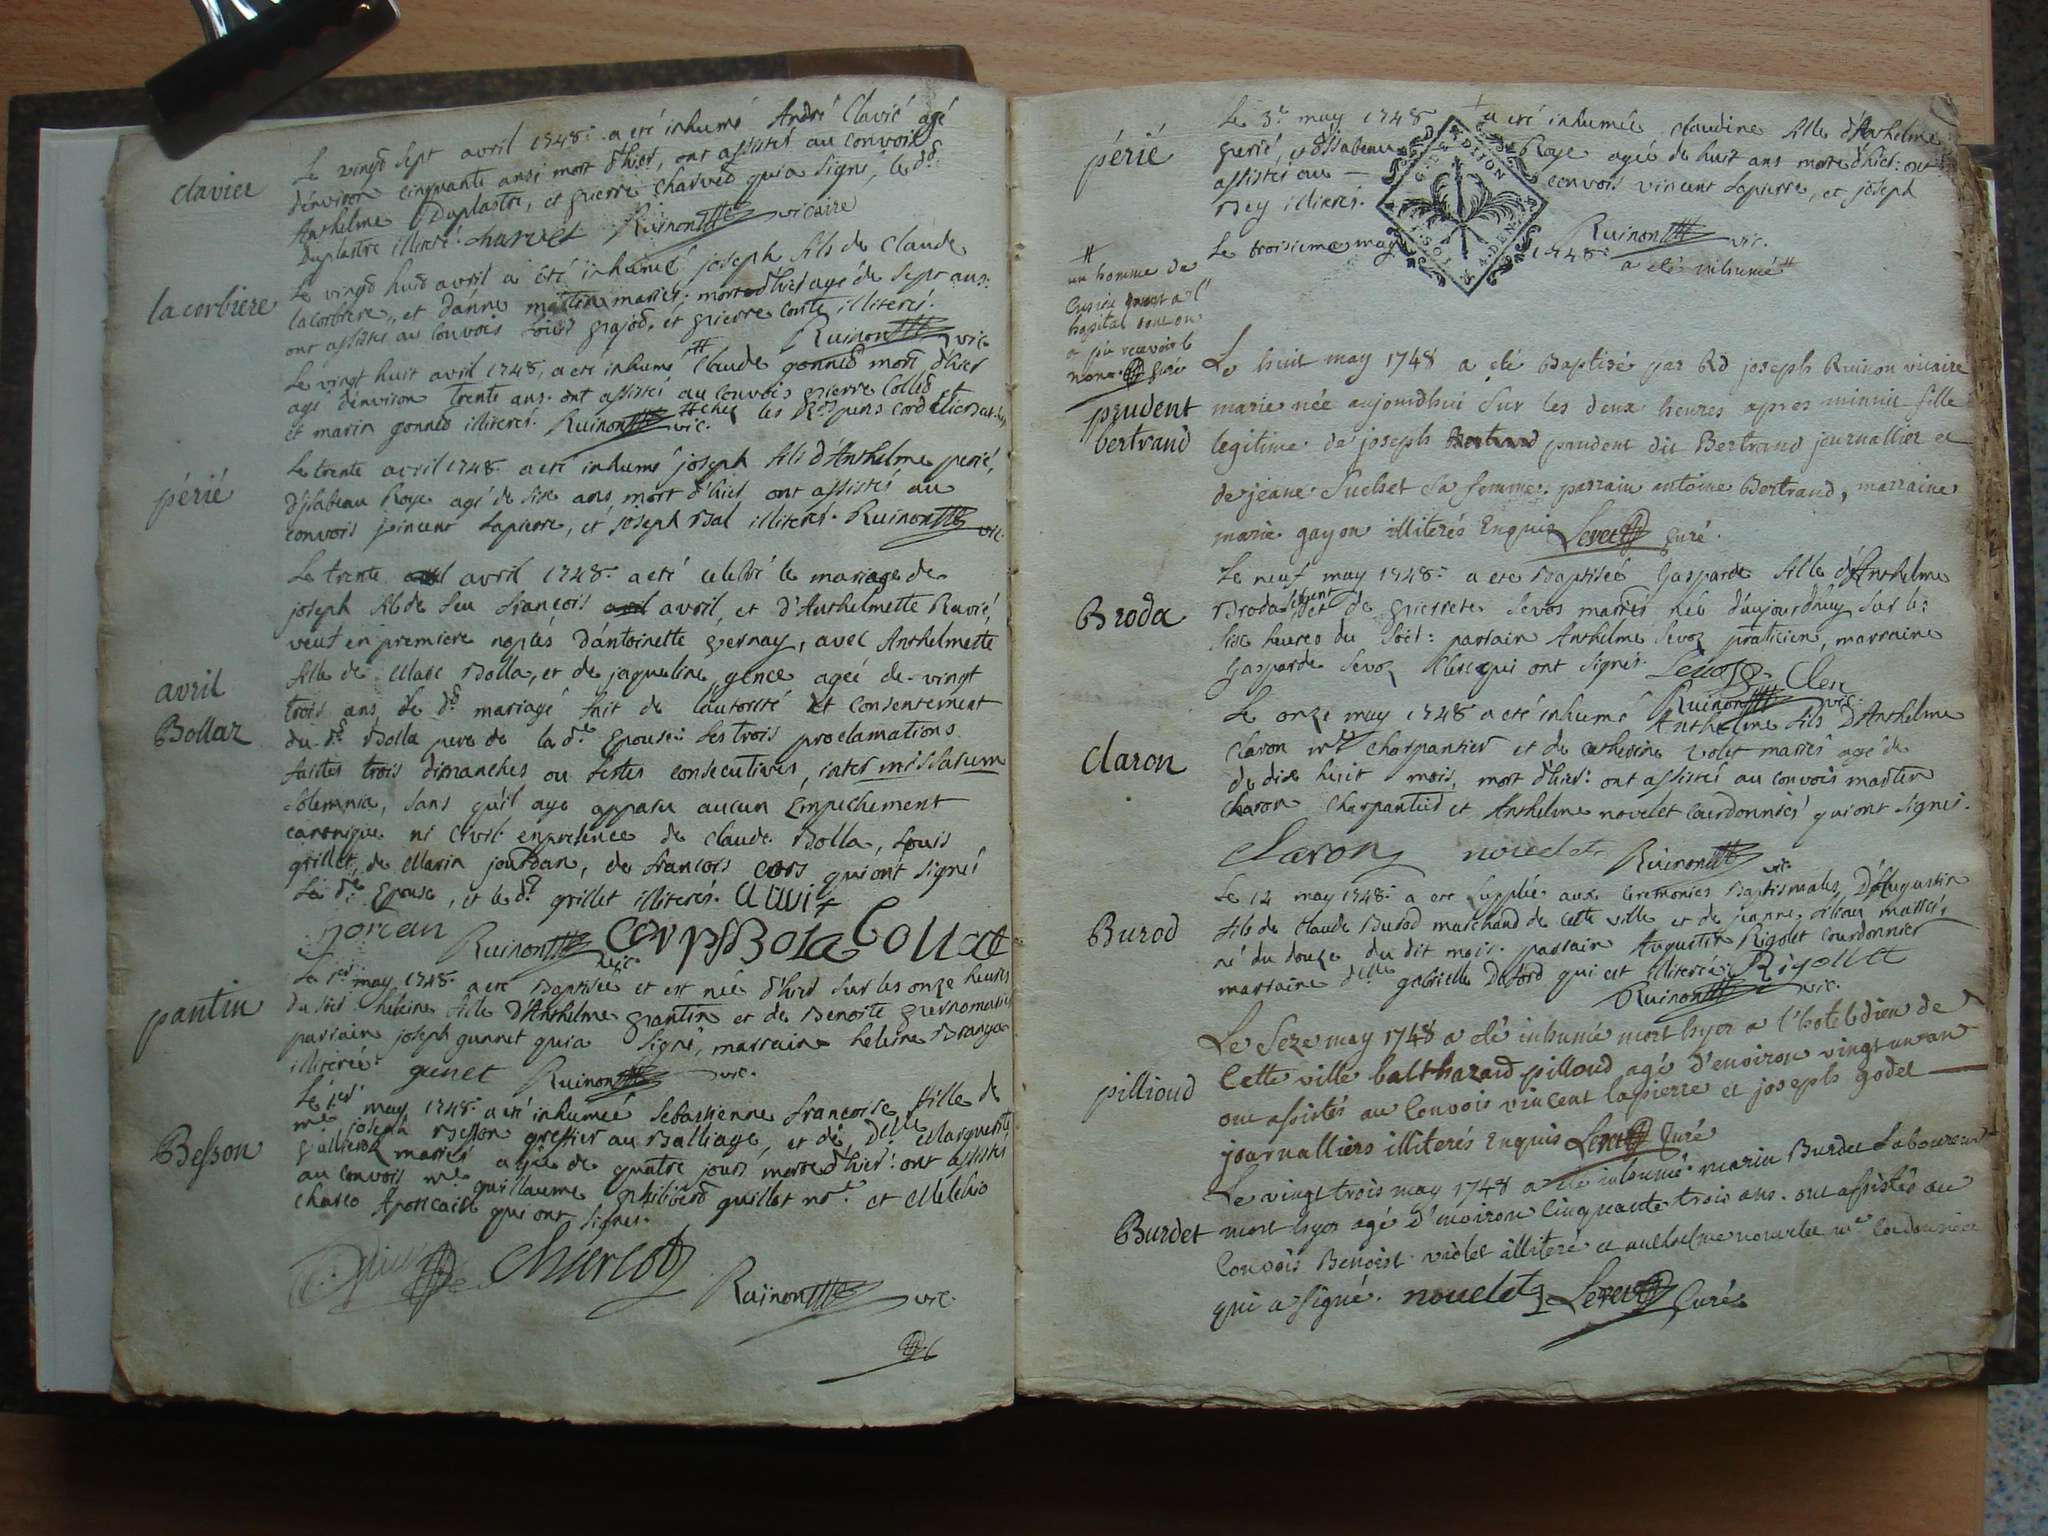 clavier
Le vingt sept avril 1748. a eté inhumé André Clavié agé
d'environ cinquante ans, mort d'hier, ont assistés au convois
Anthelme Duplastre, et pierre Charvet qui a signé, le dt
Duplastre illiteré. charvet Ruinon vicaire
lacorbiere
Le vingt huit avril a été inhumé joseph fils de Claude
lacorbiere, et d'anne martin mariés, mort d'hier agé de sept ans.
ont assistés au convois louis pajod, et pierre conte illiterés.
Ruinon vic.
Le vingt huit avril 1748, a eté inhumé Claude gonned mort d'hier
agé d'environ trente ans. ont assisté au convois pierre Colled et
et marin gonned illiterés. Ruinon vic. chez les Rds peres cordeliers
périé
Le trente avril 1748. a eté inhumé joseph fils d'Anthelme perié,
d'isabeau Roye agé de six ans, mort d'hier ont assistés au
convois vincent Lapierre, et joseph Bal illiterés. Ruinon vic.
avril
Bollaz
Le trente avril 1748. a eté celebré le mariage de
joseph fils de feu françois avril, et d'Anthelmette Ravié,
veuf en premiere noptes d'antoinette pernay, avec Anthelmette
fille de Marc Bolla, et de jaqueline gence agée de vingt
trois ans, le dt mariage fait de l'autorité et consentement
du dt Bolla pere de la de Epouse. Les trois proclamations
faittes trois dimanches ou festes consecutives, inter missarum
solemnia, sans qu'il aye apparu aucun Empechement
canonique ni Civil. en presence de claude Bolla, Louis
grillet, de Marin jourdan, de francois cors qui ont signés
La de Epouse, et le dt grillet illiterés. avrit
jordan Ruinon vic. corps Bola Collaz
pantin
Le 1er may 1748. a eté Baptisée et est née d'hier sur les onze heures
du soir heleine fille d'Anthelme pantin et de Benoite perno mariés
parrain joseph gunnet qui a signé, marraine heleine Branges
illiterée. gunet Ruinon vic.
Besson
Le 1er may 1748. a eté inhumée sebastienne francoise fille de
me joseph Besson greffier au Balliage, et de delle Marguerite
galliera mariés agée de quatre jours, morte d'hier: ont assistés
au convois me guillaume philiberd guillot nre. et Melchio
charco Apoticaire qui ont signés.
charcot
Ruinon vic.
périé
Le 3e may 1748 a eté inhumée claudine fille d'Anthelme
perié, et d'isabeau Roye agée de huit ans morte d'hier: ont
assistés au convois vincent Lapierre, et joseph
Bey illiterés.
Ruinon vic.
DIJON
1.SOL 4.DEN
Le troisieme may 1748. a eté inhumé
un homme de
hopital dont on
a pu recevoir le
nom. curé
prudent
bertrand
Le huit may 1748 a été Baptisé par Rd joseph Ruinon vicaire
marie née aujourdhui sur les deux heures apres minuit fille
legitime de joseph prudent dit Bertrand journallier et
de jeane suelset sa femme. parrain antoine Bertrand, marraine
marie gayon illiterés Enquis Curé.
Broda
Le neuf may 1748. a eté Baptisée Gasparde fille d'Anthelme
Broda et de pierrete sevos mariés née d'aujourdhuy sur les
six heures du soir: parrain Anthelme sevoz praticien, marraine
Gasparde sevoz clerc qui ont signés. Sevoz. Clerc
Ruinon vic.
claron
Le onze may 1748 a eté inhumé Anthelme fils d'Anthelme
claron me charpantier et de catherine volet mariés agé de
de dix huit mois, mort d'hier: ont assistés au convois martin
charon charpantier et Anthelme novelet courdonnier qui ont signés.
claron nouelet Ruinon vic.
Burod
Le 14 may 1748. a eté supplée aux ceremonies Baptismales, d'Augustin
fils de claude Burod marchand de cette ville et de jeanne mariés,
né du douze du dit mois. parrain Augustin Rigolet courdonnier
marraine delle gabrielle Duford qui est illiterée. Rigollet
Ruinon vic.
pillioud
Le seze may 1748 a été inhumé mort hyer a l'hotel dieu de
Cette ville balthazard pilloud agé d'environ vingt un an
ont assistés au Convois vincent lapierre et joseph godet
journalliers illiterés Enquis Curé
Burdet
Le vingt trois may 1748 a été inhumé marin Burdet Laboureur
mort hyer agé d'environ Cinquante trois ans. ont assistés au
Convois Benoist violet illiteré et anthelme nouelet me Cordonnier
qui a signé. nouelet Curé